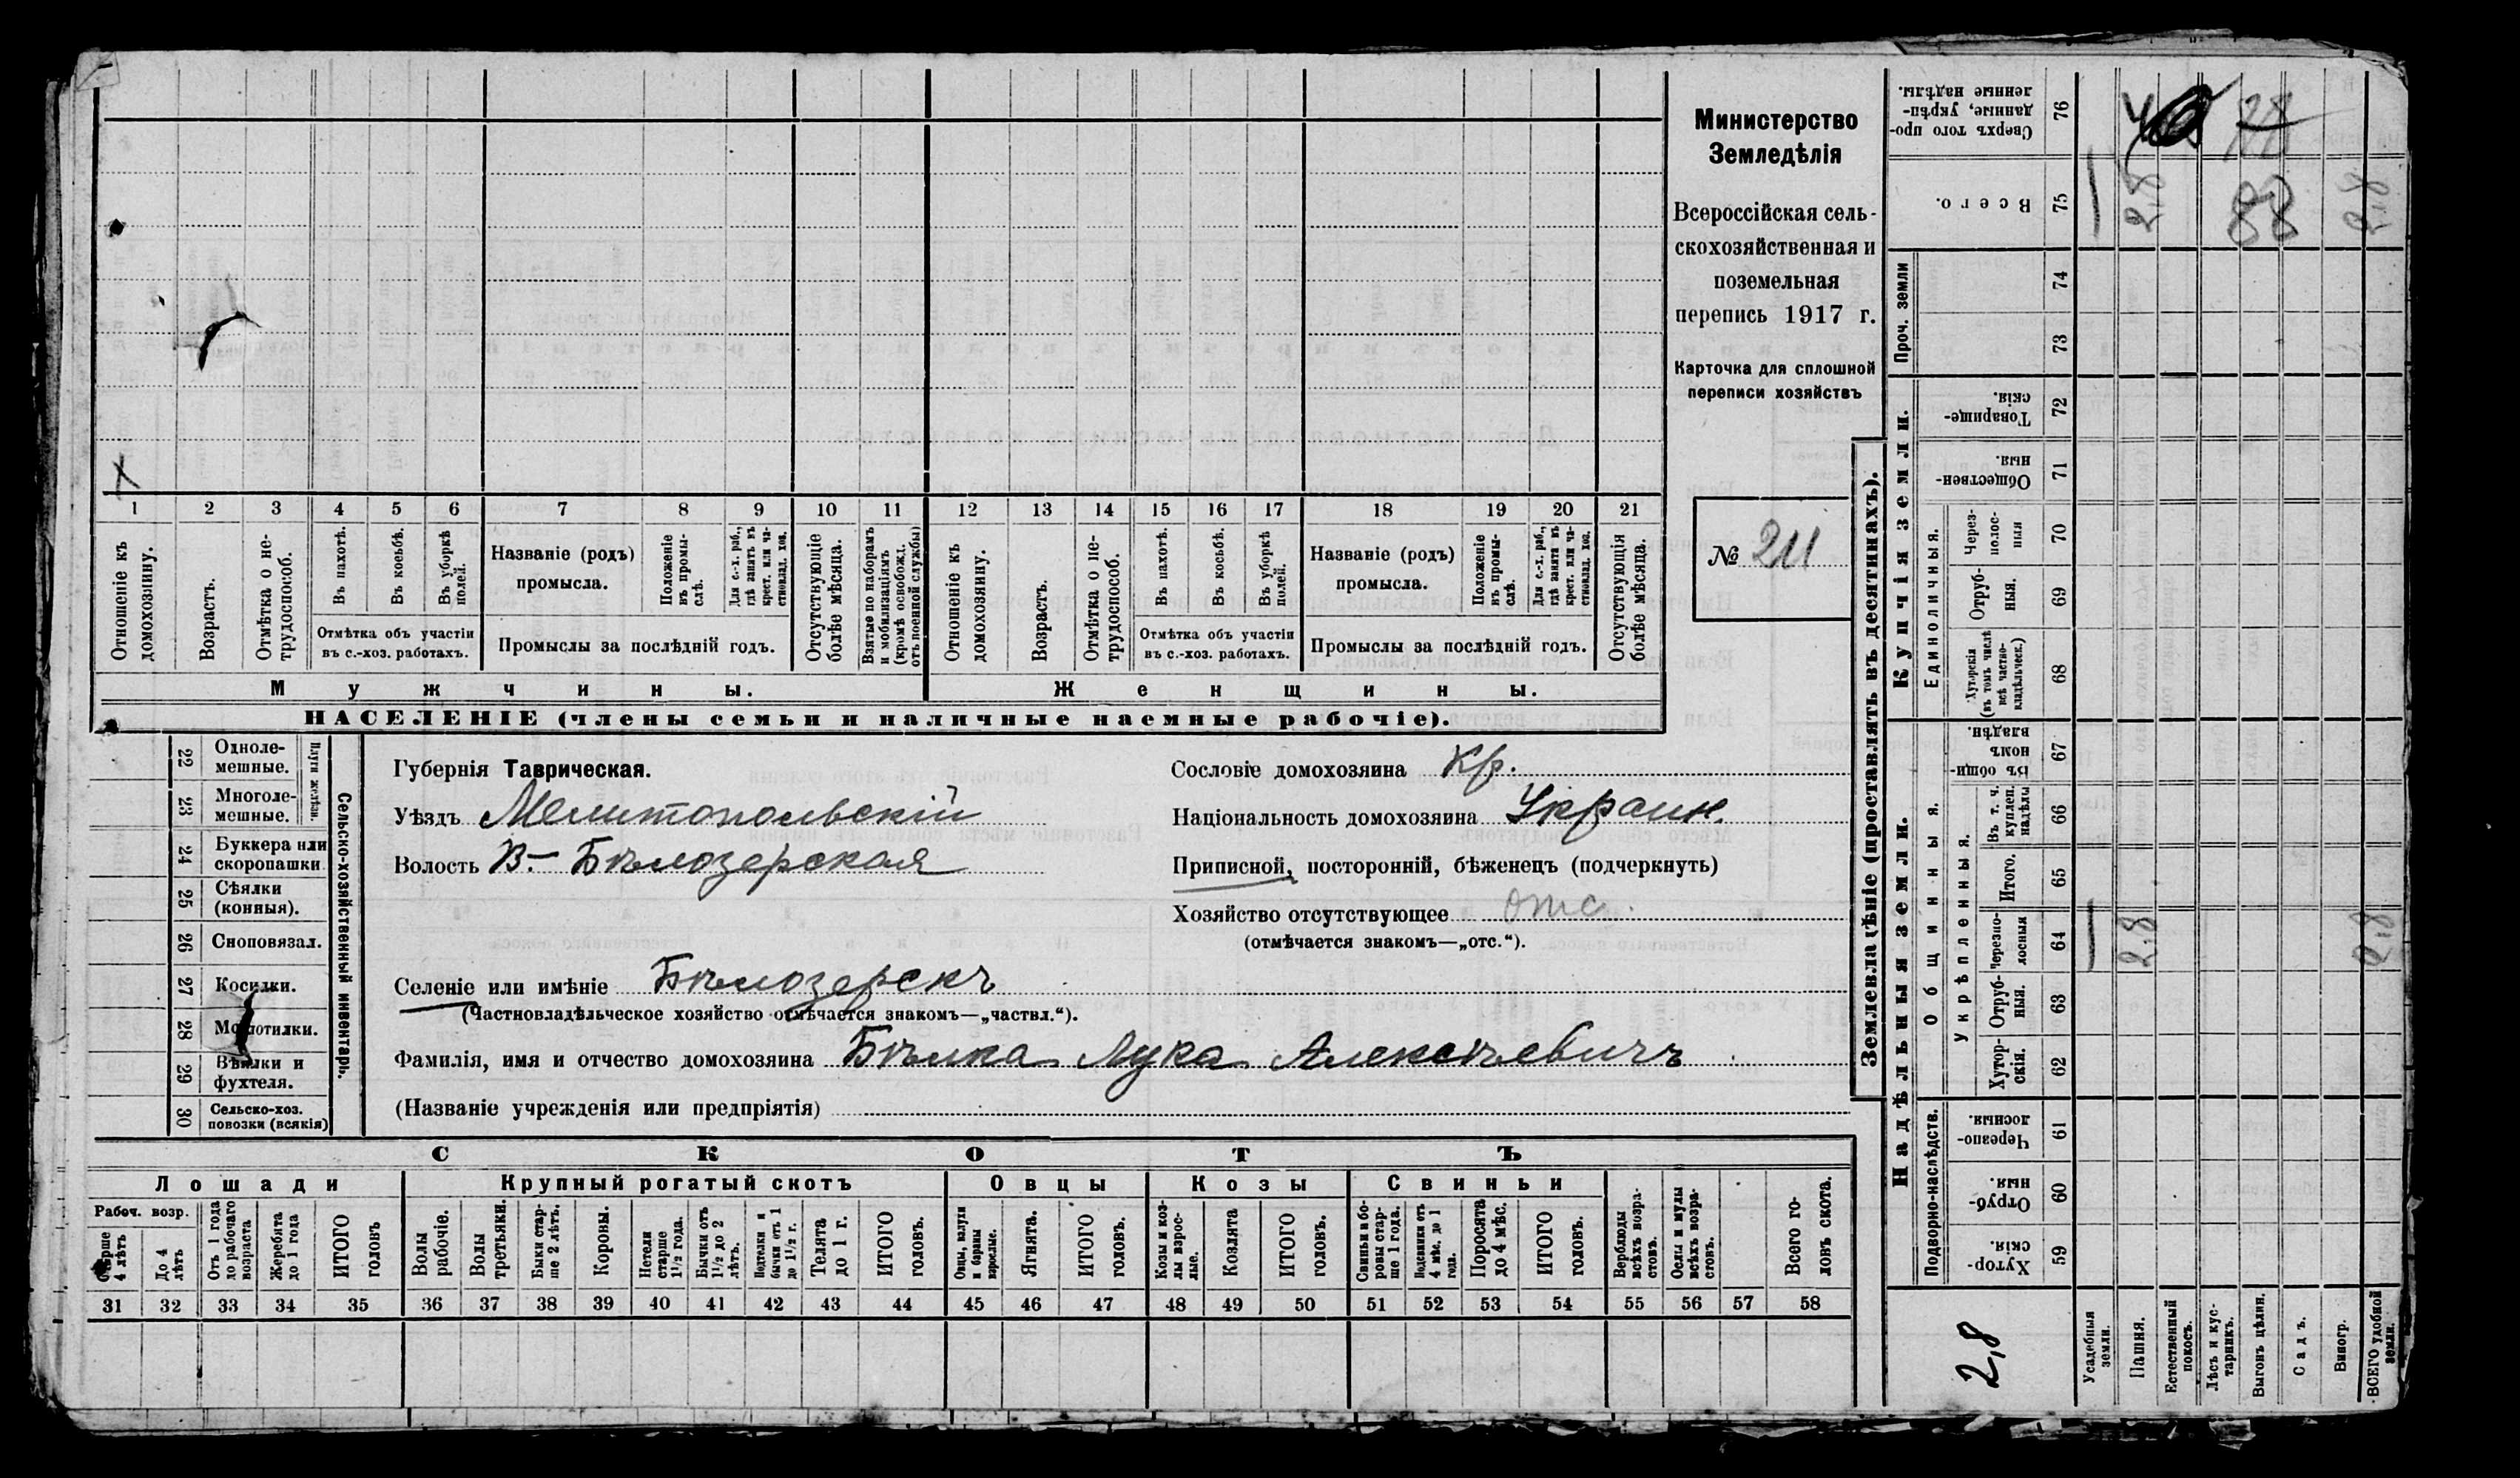 Министерство
Земледѣлія
Всероссійская сель-
скохозяйственная и
поземельная
перепись 1917 г.
Карточка для сплошной
переписи хозяйствъ
№ 211
1 2 3 4 5 6 7 8 9 10 11 12 13 14 15 16 17 18 19 20 21
Отношеніе къ домохозяину.
Возрастъ.
Отмѣтка о не-трудоспособ.
Въ пахотѣ.
Въ косьбѣ.
Въ уборкѣ полей.
Отмѣтка объ участіи
въ с.-хоз. работахъ.
Названіе (родъ)
промысла.
Положеніе въ промы-слѣ.
Для с.-х. раб., гдѣ занятъ въ крест. или ча-стновлад. хоз.
Промыслы за послѣдній годъ.
Отсутствующіе болѣе мѣсяца.
Взятые по наборамъ и мобилизаціямъ (кромѣ освобожд. отъ военной службы)
Отношеніе къ домохозяину.
Возрастъ.
Отмѣтка о не-трудоспособ.
Въ пахотѣ.
Въ косьбѣ.
Въ уборкѣ полей.
Отмѣтка объ участіи
въ с.-хоз. работахъ.
Названіе (родъ)
промысла.
Положеніе въ промы-слѣ.
Для с.-х. раб., гдѣ занята въ крест. или ча-стновлад. хоз.
Промыслы за послѣдній годъ.
Отсутствующія болѣе мѣсяца.
Мужчины. Женщины.
НАСЕЛЕНІЕ (члены семьи и наличные наемные рабочіе).
22 Однолемешные.
23 Многолемешные.
Плуги желѣзн.
24 Буккера или скоропашки
25 Сѣялки (конныя).
26 Сноповязал.
27 Косилки.
28 Молотилки.
29 Вѣялки и фухтеля.
30 Сельско-хоз. повозки (всякія)
Сельско-хозяйственный инвентарь.
Губернія Таврическая.
Уѣздъ Мелитопольскій
Волость В-Бѣлозерская
Сословіе домохозяина Кр.
Національность домохозяина Украин.
Приписной, посторонній, бѣженецъ (подчеркнуть)
Хозяйство отсутствующее отс.
(отмѣчается знакомъ—„отс.“).
Селеніе или имѣніе Бѣлозерскъ
(Частновладѣльческое хозяйство отмѣчается знакомъ—„частвл.“).
Фамилія, имя и отчество домохозяина Бѣлка Лука Алексѣевичъ
(Названіе учрежденія или предпріятія)
СКОТЪ
Лошади Крупный рогатый скотъ Овцы Козы Свиньи
Рабоч. возр.
Старше 4 лѣтъ
До 4 лѣтъ
Отъ 1 года до рабочаго возраста
Жеребята до 1 года
ИТОГО головъ
Волы рабочіе.
Волы третьяки.
Быки стар-ше 2 лѣтъ.
Коровы.
Нетели старше 1½ года.
Бычки отъ 1½ до 2 лѣтъ.
Подтелки и бычки отъ 1 до 1½ г.
Телята до 1 г.
ИТОГО головъ.
Овцы, валухи и бараны взрослые.
Ягнята.
ИТОГО головъ.
Козы и коз-лы взрос-лые.
Козлята
ИТОГО головъ.
Свиньи и бо-ровы стар-ше 1 года.
Подсвинки отъ 4 мѣс. до 1 года.
Поросята до 4 мѣс.
ИТОГО головъ.
Верблюды всѣхъ возра-стовъ.
Ослы и мулы всѣхъ возра-стовъ.
Всего го-ловъ скота.
31 32 33 34 35 36 37 38 39 40 41 42 43 44 45 46 47 48 49 50 51 52 53 54 55 56 57 58
Землевладѣніе (проставлять въ десятинахъ).
Надѣльныя земли. Купчія земли. Проч. земли
Подворно-наслѣдств.
Общинныя
Укрѣпленныя.
Единоличныя.
59 Хутор-скія.
60 Отруб-ныя.
61 Черезпо-лосныя.
62 Хутор-скія.
63 Отруб-ныя.
64 Черезпо-лосныя
65 Итого.
66 Въ т. ч. куплен. надѣлы
67 Въ общин-номъ владѣн.
68 Хуторскія (въ томъ числѣ всѣ частно-владѣльческ.)
69 Отруб-ныя.
70 Через-полос-ныя
71 Обществен-ныя.
72 Товарище-скія.
73
74
75 Всего.
76 Сверхъ того про-данные, укрѣп-ленные надѣлы.
2,8
Усадебныя земли.
Пашня. 2.8 2,8
Естественный покосъ.
Лѣсъ и кус-тарникъ.
Выгонъ цѣлин. 88
Садъ.
Виногр.
ВСЕГО удобной земли. 2,8 2,8